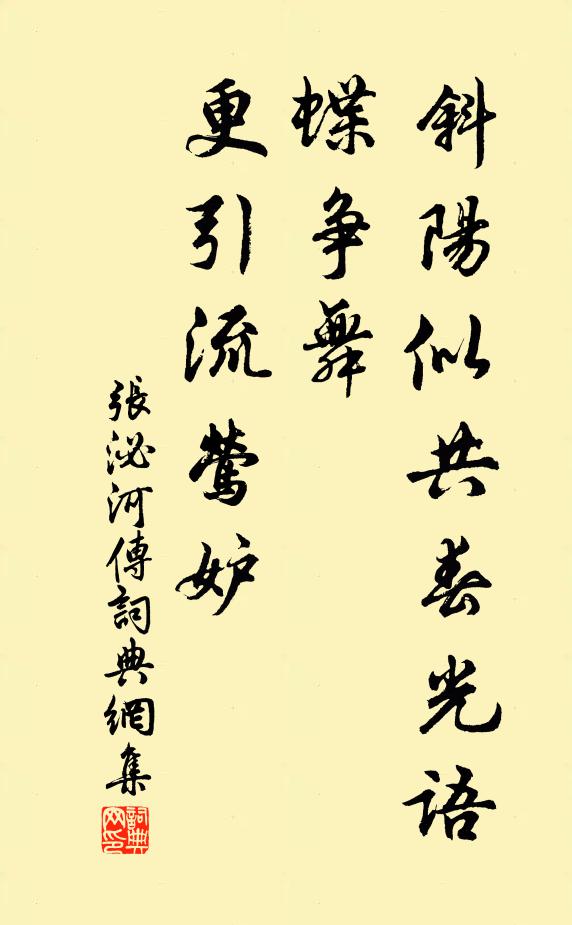 斜陽似共春光語
蝶爭舞
更引流鶯妒
張泌河傳詞典網集
詞典網印